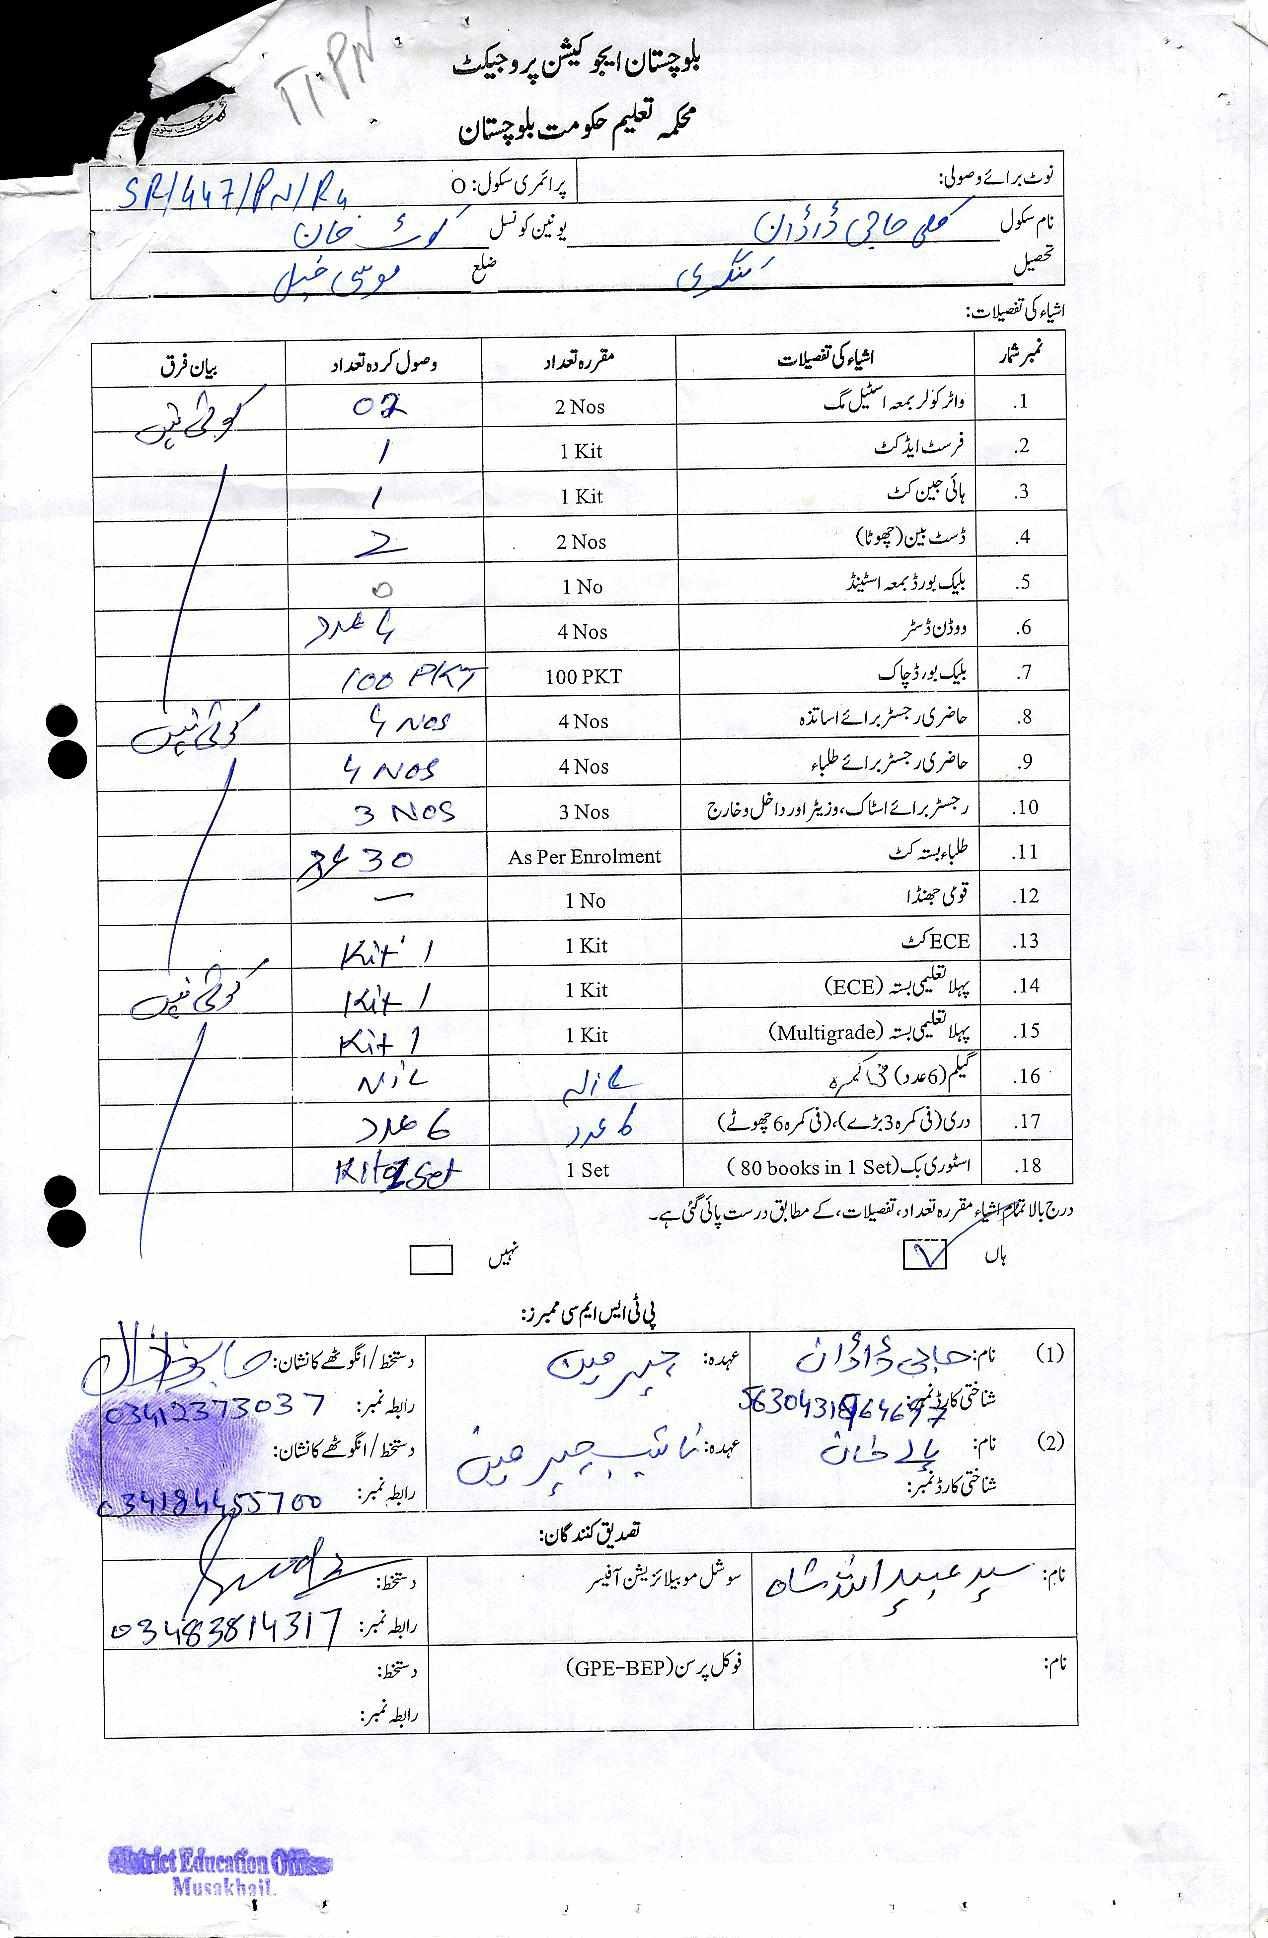 TT.PN
بلوچستان ایجوکیشن پروجیکٹ
محکمہ تعلیم حکومت بلوچستان
نوٹ برائے وصولی: پرائمری سکول: O SR/447/PN/R4
نام سکول کلی حاجی ڈاڈان یونین کونسل کوٹ خان
تحصیل کنگری ضلع موسیٰ خیل
اشیاء کی تفصیلات:
نمبر شمار اشیاء کی تفصیلات مقررہ تعداد وصول کردہ تعداد بیان فرق
1. واٹر کولر بمعہ اسٹیل مگ 2 Nos 02 کوئی نہیں
2. فرسٹ ایڈ کٹ 1 Kit 1
3. ہائی جین کٹ 1 Kit 1
4. ڈسٹ بین (چھوٹا) 2 Nos 2
5. بلیک بورڈ بمعہ اسٹینڈ 1 No 0
6. ووڈن ڈسٹر 4 Nos 4 عدد
7. بلیک بورڈ چاک 100 PKT 100 PKT
8. حاضری رجسٹر برائے اساتذہ 4 Nos 4 Nos کوئی نہیں
9. حاضری رجسٹر برائے طلباء 4 Nos 4 Nos
10. رجسٹر برائے اسٹاک، وزیٹر اور داخل و خارج 3 Nos 3 Nos
11. طلباء بستہ کٹ As Per Enrolment 30 عدد
12. قومی جھنڈا 1 No —
13. ECE کٹ 1 Kit Kit 1
14. پہلا تعلیمی بستہ (ECE) 1 Kit Kit 1 کوئی نہیں
15. پہلا تعلیمی بستہ (Multigrade) 1 Kit Kit 1
16. گیلم (6 عدد) فی کمرہ Nil
17. دری (فی کمرہ 3 بڑے)، (فی کمرہ 6 چھوٹے) 6 عدد 6 عدد
18. اسٹوری بک (80 books in 1 Set) 1 Set Set
درج بالا تمام اشیاء مقررہ تعداد، تفصیلات، کے مطابق درست پائی گئی ہے۔
ہاں ✓ نہیں
پی ٹی ایس ایم سی ممبرز:
(1) نام: حاجی ڈاڈان عہدہ: چیرمین دستخط/انگوٹھے کا نشان:
شناختی کارڈ نمبر: رابطہ نمبر: 03412373037
(2) نام: عہدہ: نائب چیرمین دستخط/انگوٹھے کا نشان:
شناختی کارڈ نمبر: رابطہ نمبر: 03418445700
تصدیق کنندگان:
نام: سید عبید اللہ شاہ سوشل موبیلائزیشن آفیسر دستخط:
رابطہ نمبر: 03483814317
نام: فوکل پرسن (GPE-BEP) دستخط:
رابطہ نمبر:
District Education Office
Musakhail.